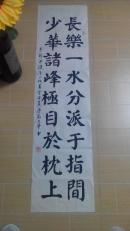 長樂一水分派于指間
少華諸峰極目於枕上